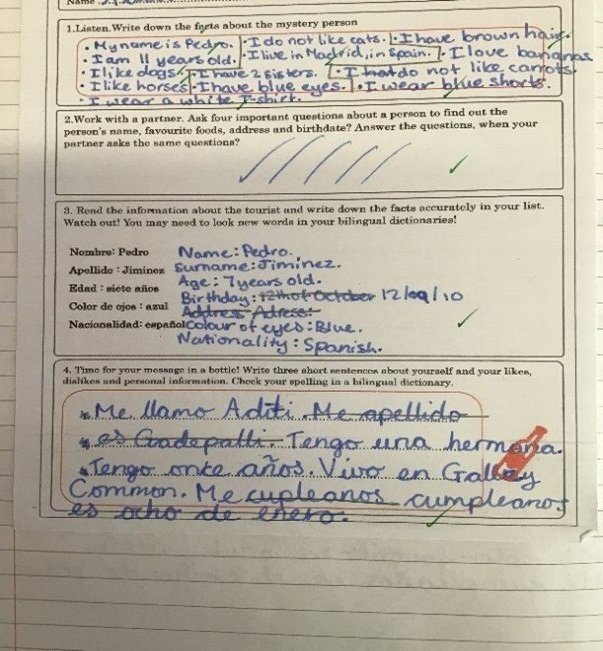 Name
1.Listen. Write down the facts about the mystery person
• My name is Pedro. • I do not like cats. • I have brown hair.
• I am 11 years old. • I live in Madrid, in Spain. • I love bananas
• I like dogs. • I have 2 sisters. • I do not like carrots.
• I like horses • I have blue eyes. • I wear blue shorts.
• I wear a white T-shirt.
2.Work with a partner. Ask four important questions about a person to find out the
person's name, favourite foods, address and birthdate? Answer the questions, when your
partner asks the same questions?
3. Read the information about the tourist and write down the facts accurately in your list.
Watch out! You may need to look new words in your bilingual dictionaries!
Nombre: Pedro Name: Pedro.
Apellido : Jiminez Surname: Jiminez.
Edad : siete años Age: 7 years old.
Birthday: 12th of October 12/09/10
Color de ojos : azul Address Adress:
Nacionalidad: español Colour of eyes: Blue.
Nationality: Spanish.
4. Time for your message in a bottle! Write three short sentences about yourself and your likes,
dislikes and personal information. Check your spelling in a bilingual dictionary.
Me llamo Aditi. Me apellido
es Gadepalli. Tengo una hermana.
Tengo once años. Vivo en Galley
Common. Me cupleanos cumpleanos
es ocho de enero.